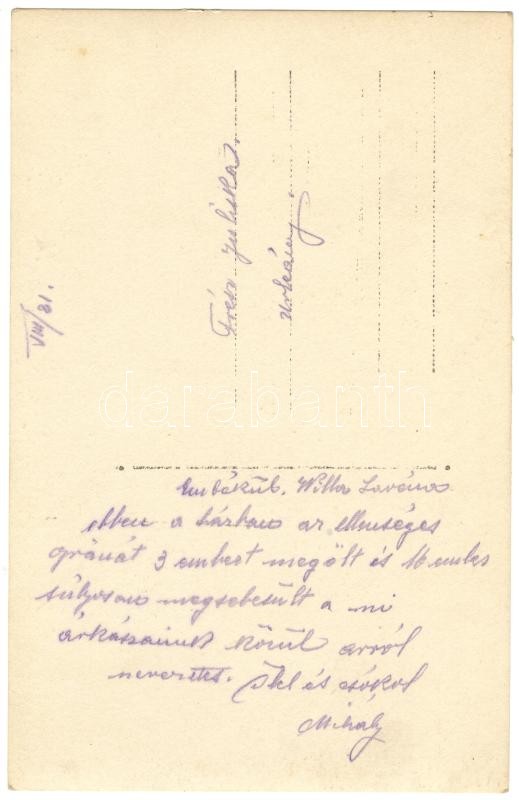 VIII/31.
Frész Juliska.
Urkány.
Emlékül. Willa Lavéna
ebben a házban az ellenséges
gránát 3 embert megölt és 16 ember
súlyosan megsebesült a mi
árkászaink közül arról
nevezetes. Ölel és csókol
Mihály
darabanth